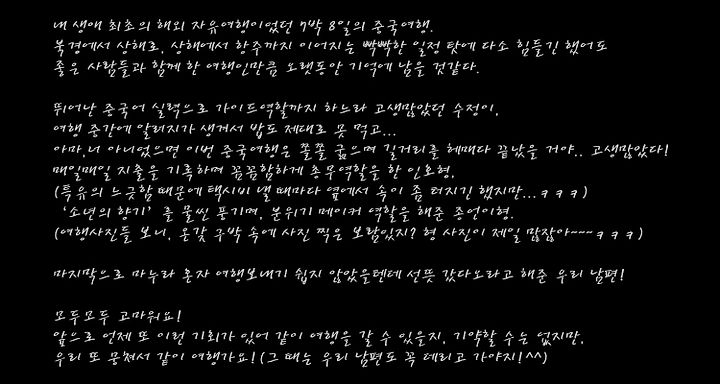 내 생애 최초의 해외 자유여행이었던 7박 8일의 중국여행.
북경에서 상해로, 상해에서 항주까지 이어지는 빡빡한 일정 탓에 다소 힘들긴 했어도
좋은 사람들과 함께 한 여행인만큼 오랫동안 기억에 남을 것같다.
뛰어난 중국어 실력으로 가이드역할까지 하느라 고생많았던 수정이,
여행 중간에 알러지가 생겨서 밥도 제대로 못 먹고...
아마, 너 아니었으면 이번 중국여행은 쫄쫄 굶으며 길거리를 헤매다 끝났을 거야.. 고생많았다!
매일매일 지출을 기록하며 꼼꼼함하게 총무역할을 한 인호형.
(특유의 느긋함 때문에 택시비 낼 때마다 옆에서 속이 좀 터지긴 했지만...ㅋㅋㅋ)
'소년의 향기' 를 물씬 풍기며, 분위기 메이커 역할을 해준 종언이형.
(여행사진들 보니, 온갖 구박 속에 사진 찍은 보람있지? 형 사진이 제일 많잖아~~~ㅋㅋㅋ)
마지막으로 마누라 혼자 여행보내기 쉽지 않았을텐데 선뜻 갔다오라고 해준 우리 남편!
모두모두 고마워요!
앞으로 언제 또 이런 기회가 있어 같이 여행을 갈 수 있을지, 기약할 수는 없지만,
우리 또 뭉쳐서 같이 여행가요! (그 때는 우리 남편도 꼭 데리고 가야지!^^)